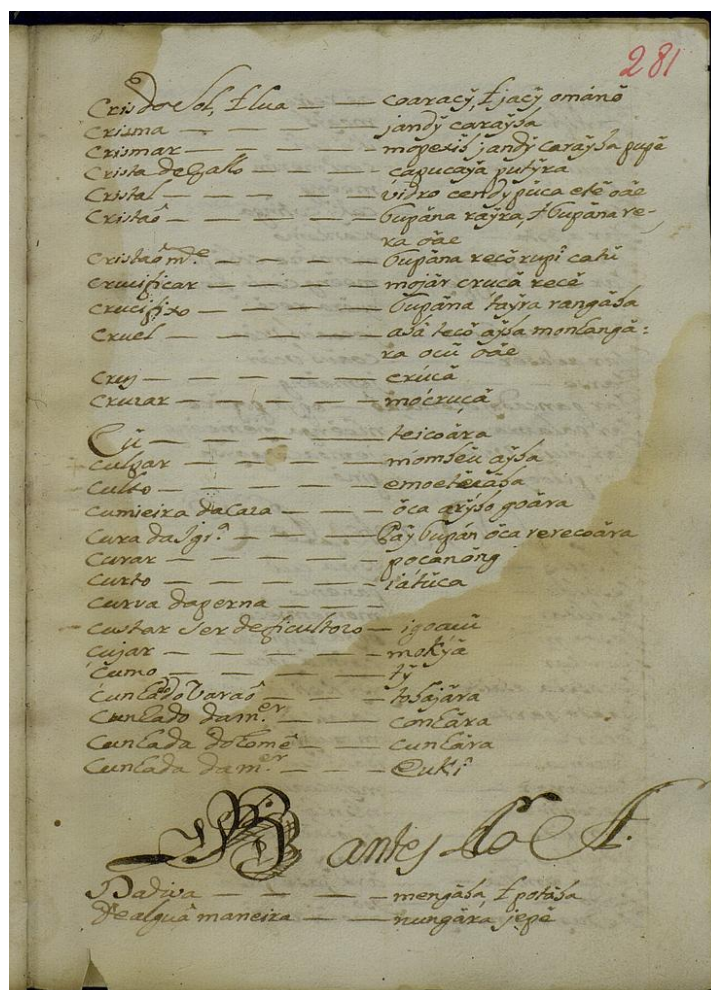 281
Cris do Sol, ł lua — — coaracÿ, ł jacÿ ománõ
Crisma — — — — jandÿ caraÿba
Crismar — — — — mopexib jandÿ caraÿba pupê
Crista de Gallo — — — çapucaya putÿra
Cristal — — — — vidro cendÿpúca etê oáe
Cristaõ — — — — Tupãna raÿra, ł Tupãna re-
ra oáe
Cristaõm.te — — — — Tupãna recõ rupî catú
Crucificar — — — — mojár cruçá recê
Crucifixo — — — — Tupãna taÿra rangába
Cruel — — — — tecõ aÿba monhangá:
ra oáe
Cruz — — — — crúçá
Cruzar — — — — mocruçá
Cú — — — — teicoára
Culpar — — — — mombeú aÿba
Culto — — — — 
Cumieira da Caza — — — óca arÿbo goára
Cura da Igr.ª — — — Paÿ Tupán óca rerecoára
Curar — — — — poçanóng
Curto — — — — iatúca
Curva da perna —
Custar ser deficultozo —
Cujar — — — — mokÿá
Çumo — — — — tÿ
Cunhado Varaõ — — — tobajára
Cunhado da m.er — — —
Cunhada do homẽ — — cunhára
Cunhada da m.er — — Eukî
D antes do A.
Dadiva — — — — mengába, ł potába
De algũa maneira — — nungára jepê